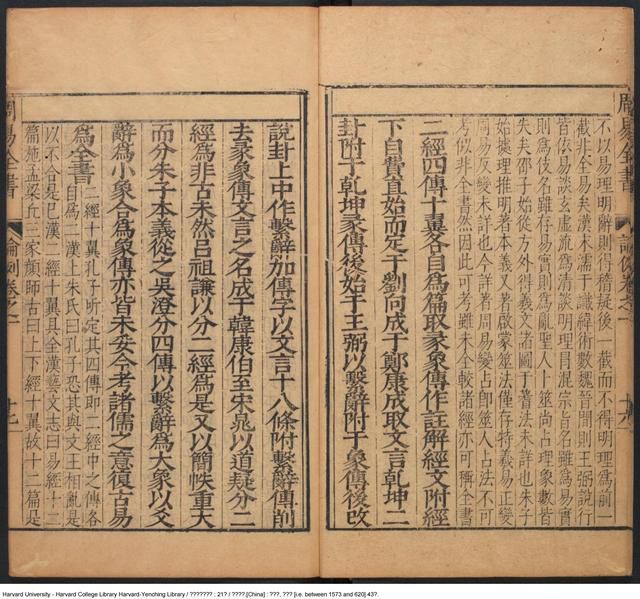 周易全書
論例卷之一
十八
不以易理明辭則得稽疑後一截而不得明理為前一
截非全易矣漢末濡于讖緯術數魏晉間則王弼說行
皆依易談玄虛流為清談明理目混宗旨名雖為易實
則為伎名雖存易實則為亂聖人卜筮尚占理象數皆
失矣邵子始從方外得義文者圖于著法未詳也朱子
始據理推明著本義又著啟蒙筮法僅存特義易正變
周易反變未詳也今詳著周易變占即筮人占法不可
考似非全書然因此可考雖未今較諸經亦可稱全書
二經四傳十翼各自為篇取彖象傳作註解經文附經
下自費直始而定于劉向成于鄭康成取文言乾坤二
卦附于乾坤彖傳後始于王弼以繫辭附于象傳後改
說卦上中作繫辭加傳字以文言十八條附繫辭傳削
去彖象傳文言之名成于韓康伯至宋晁以道疑分二
經為非古未然呂祖謙以分二經為是又以簡帙重大
而分朱子本義從之吳澄分四傳以繫辭為大象以爻
辭為小象合為象傳亦皆未安今考諸儒之意復古易
為全書經十翼孔子所定其四傳即二經中之傳各
自為二漢上朱氏曰孔子恐其與文王相亂是
以不合是巳漢二經十翼具全漢藝文志曰易經十二
篇施孟梁丘三家顏師古曰上下經十翼故十二篇是
周易全書
論例卷之一
十九
Harvard University - Harvard College Library Harvard-Yenching Library / ??????? : 21? / ????.[China] : ???, ??? [i.e. between 1573 and 620] 43?.